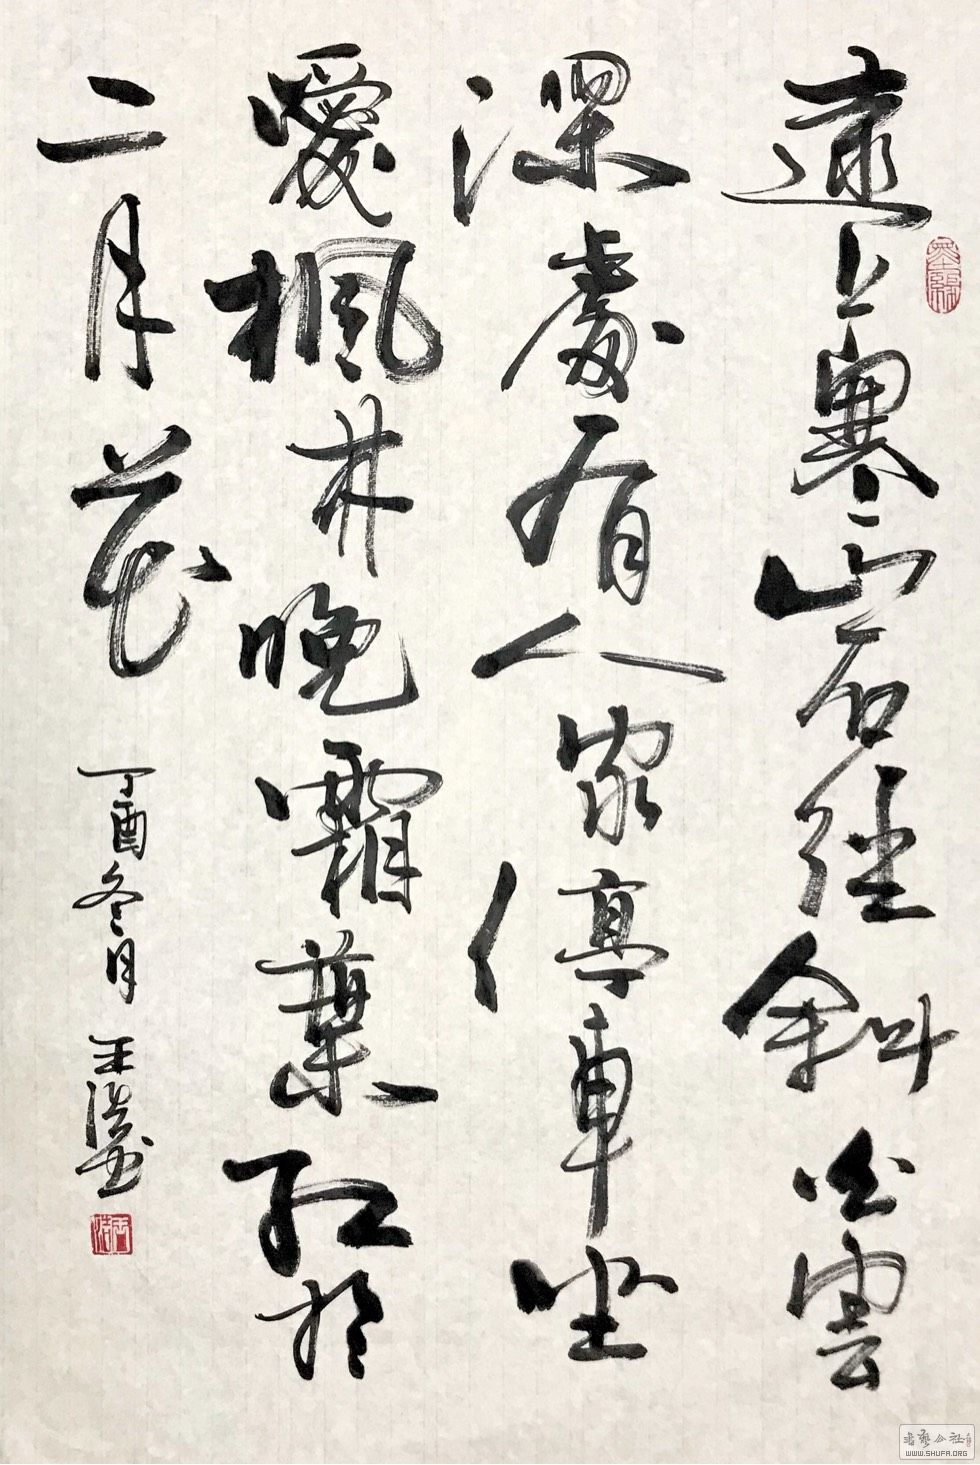 遠上寒山石径斜白雲
深處有人家停車坐
愛楓林晚霜葉紅於
二月花
丁酉冬月 王浩書
WWW.SHUFA.ORG